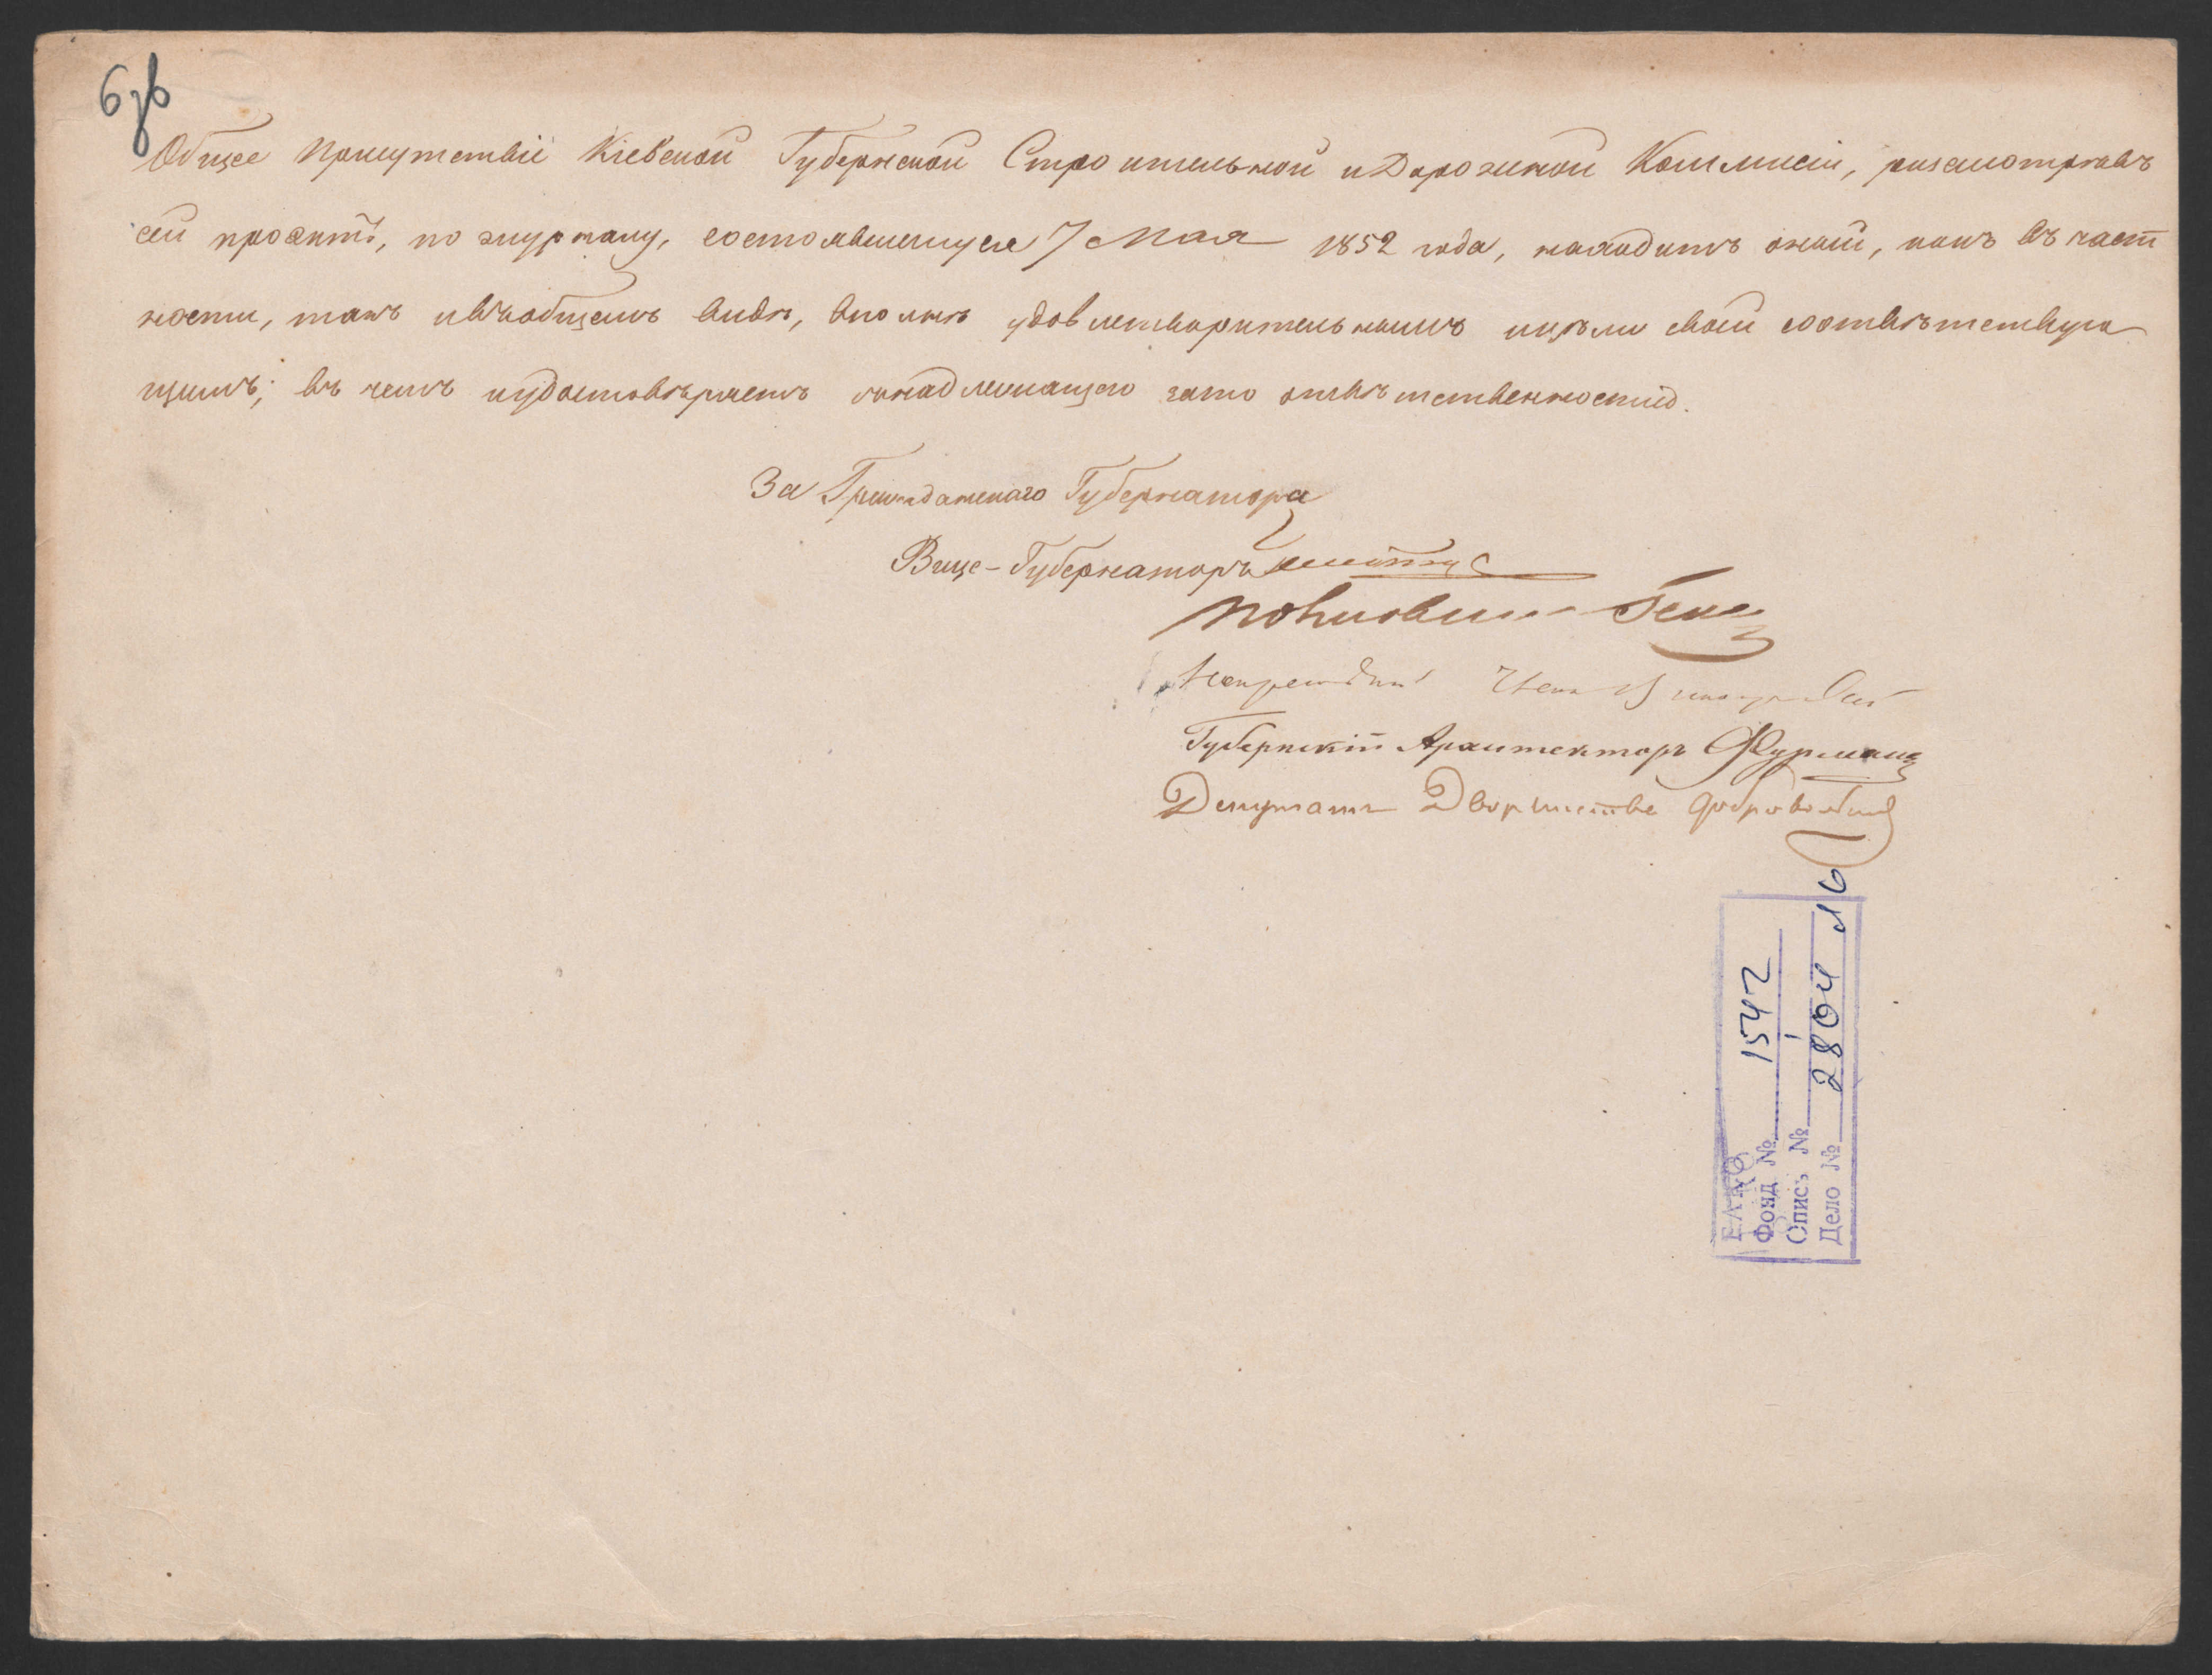 6зв
Общее Присутствіе Кіевской Губернской Строительной и Дорожной Коммисіи, разсмотрѣвъ
сей проэктъ, по журналу, состоявшемуся 7 Мая 1852 года, находитъ оный, какъ въ част
ности, такъ и въ общемъ видѣ, вполнѣ удовлетворительнымъ и цѣли своей соотвѣтствую
щимъ; въ чемъ и удостовѣряетъ съ надлежащею за то отвѣтственностію.
За Гражданскаго Губернатора
Вице-Губернаторъ
Полковникъ
Непремѣнный Членъ
Губернскій Архитекторъ Фурманъ
Депутатъ Дворянства
ГАКО
Фонд № 1542
Опись № 1
Дело № 2804 л 6